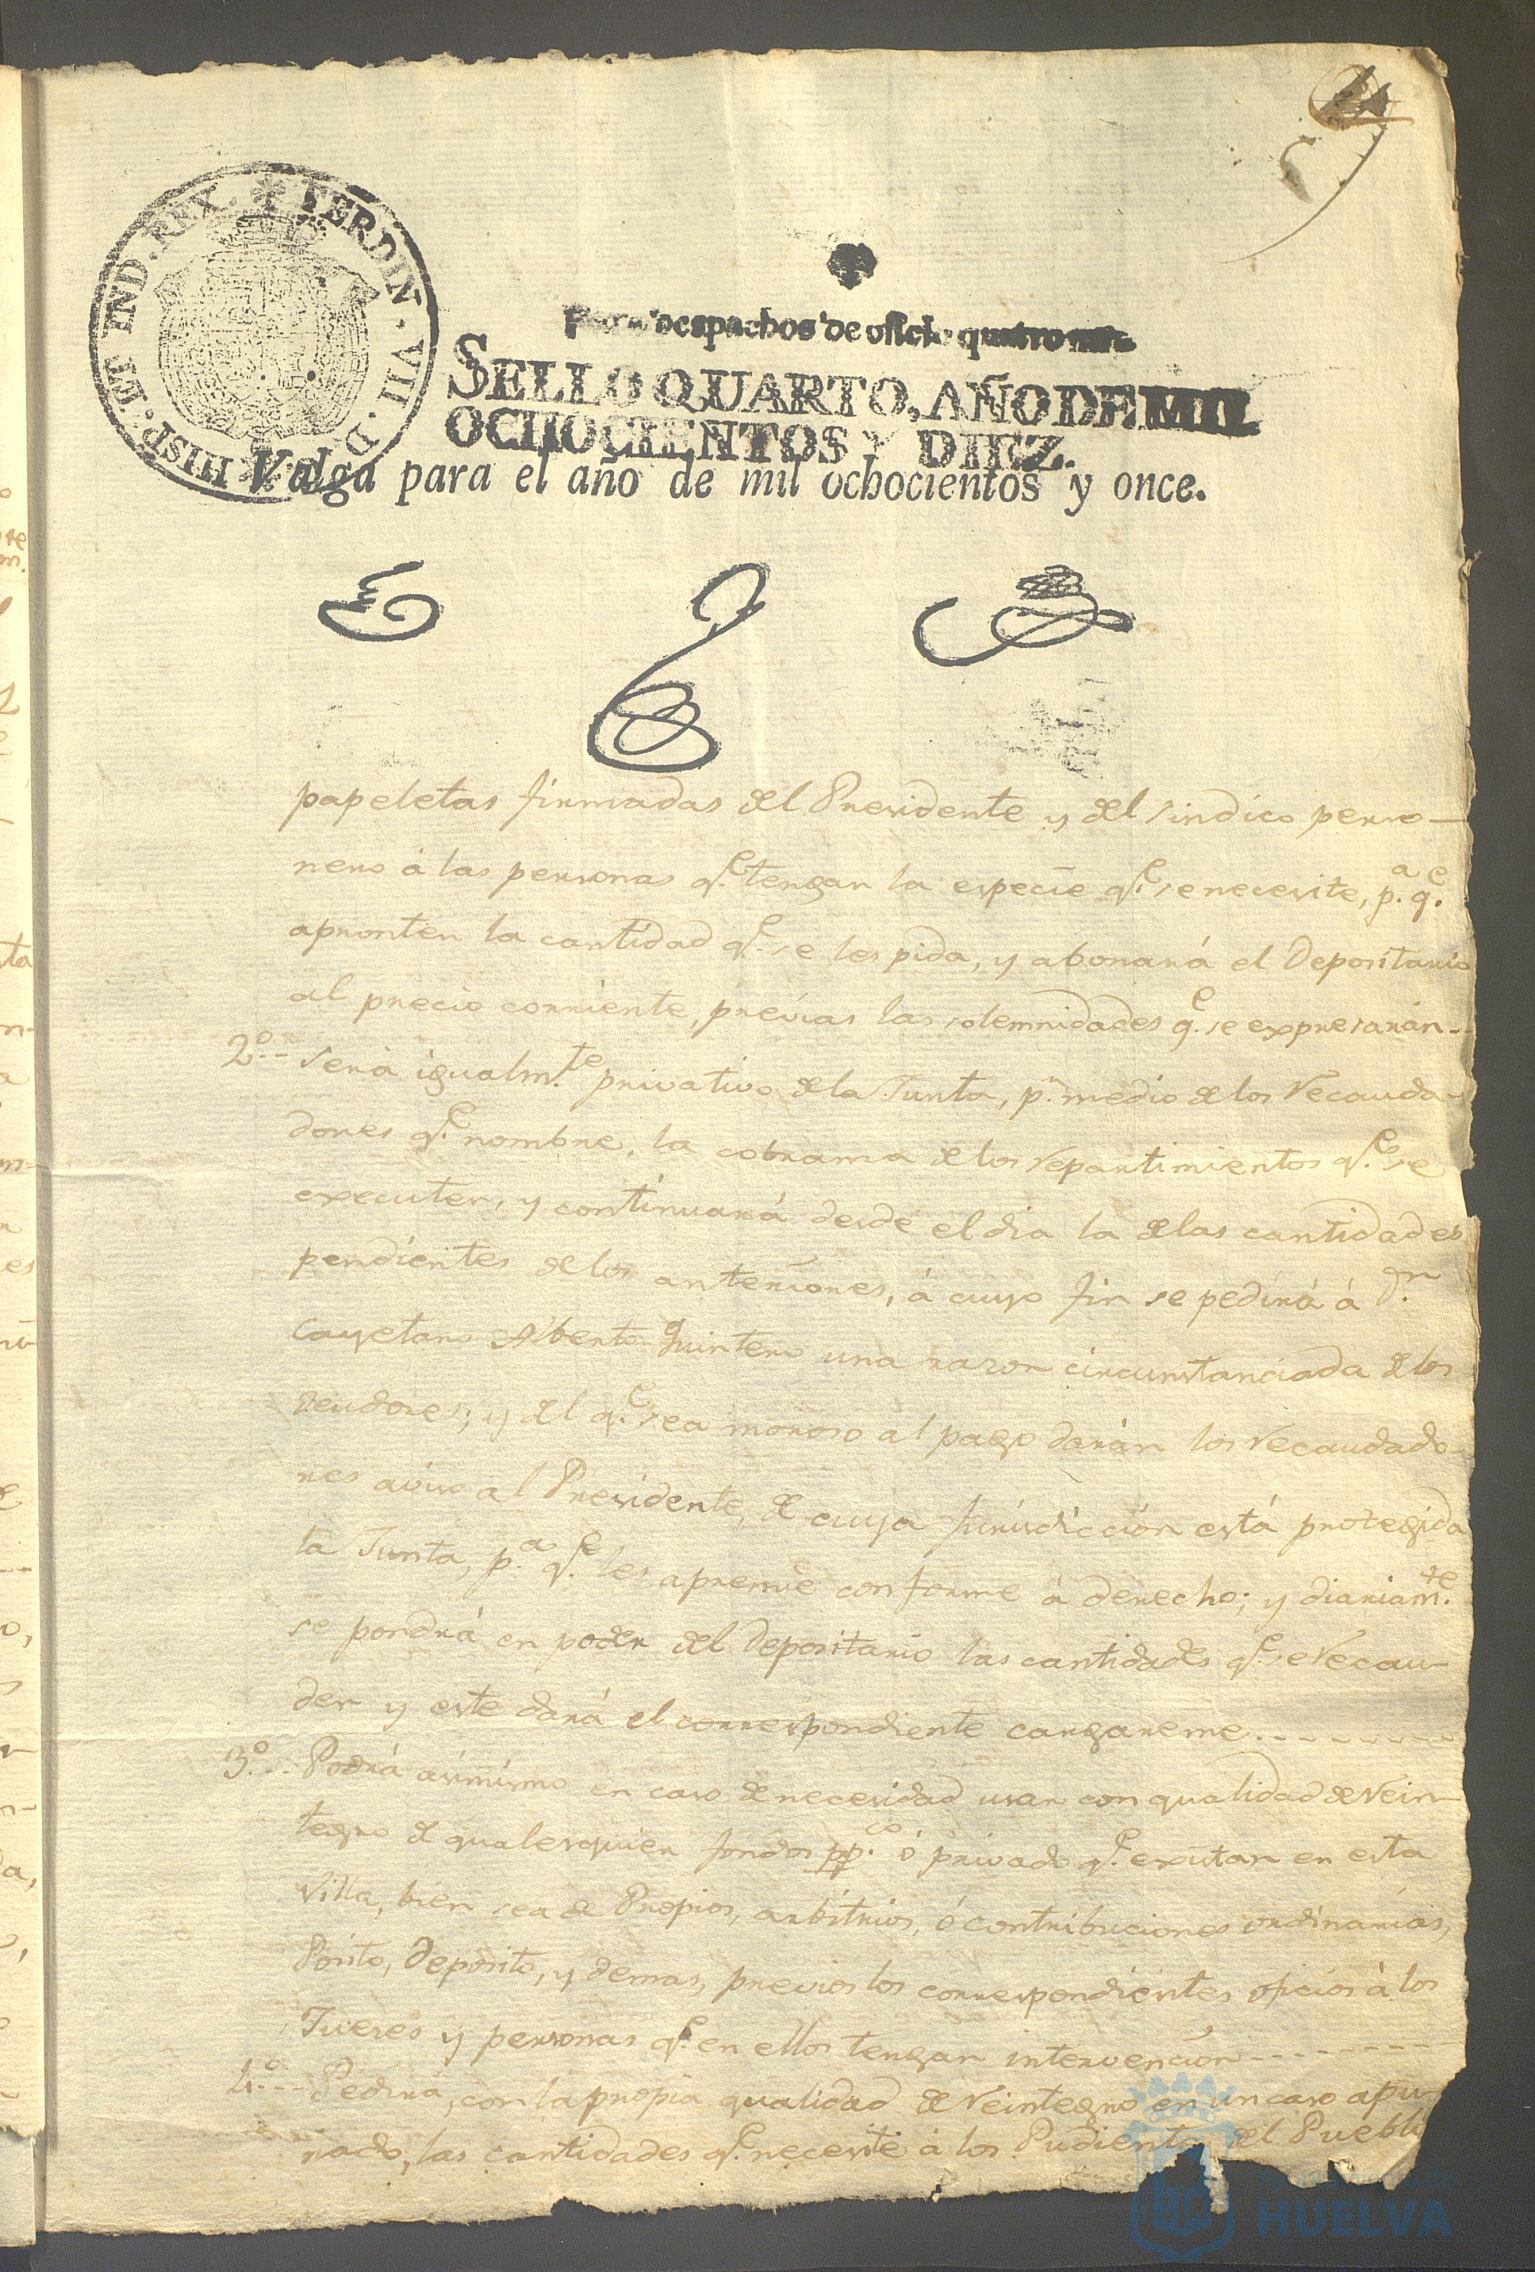 FERDIN. VII. D. G. HISP. ET IND. REX.
Para despachos de oficio quatro mrs.
SELLO QUARTO, AÑO DE MIL
OCHOCIENTOS Y DIEZ.
Valga para el año de mil ochocientos y once.
papeletas firmadas del Presidente y del sindico perso-
nero á las personas q.e tengan la especie q.e se necesite, p.a q.e
apronten la cantidad q.e se les pida, y abonará el Depositario
al precio corriente, previas las solemnidades q.e se expresarán--
2.º-- Será igualm.te privativo de la Junta, p.r medio de los Recauda-
dores q.e nombre, la cobranza de los repartimientos q.e se
executen, y continuará desde el dia la de las cantidades
pendientes de los anteriores, á cuyo fin se pedirá á D.n
Cayetano Alberto Quintero una razon circunstanciada de los
deudores; y del q.e sea moroso al pago darán los Recaudado-
res aviso al Presidente, de cuya Jurisdiccion está protegida
la Junta, p.a q.e les apremie conforme á derecho; y diariam.te
se pondrá en poder del Depositario las cantidades q.e se Recau-
den y este dará el correspondiente cargareme--------
3.º-- Podrá asimismo en caso de necesidad usar con qualidad de Rein-
tegro de qualesquier fondos pp.co ó privado q.e existan en esta
Villa, bien sea de Propios, arbitrios, ó contribuciones ordinarias,
Pósito, Deposito, y demas, previos los correspondientes oficios á los
Jueces y personas q.e en ellos tengan intervencion--------
4.º-- Pedirá, con la propia qualidad de Reintegro en un caso apu-
rado, las cantidades q.e necesite á los Pudientes del Pueblo
HUELVA